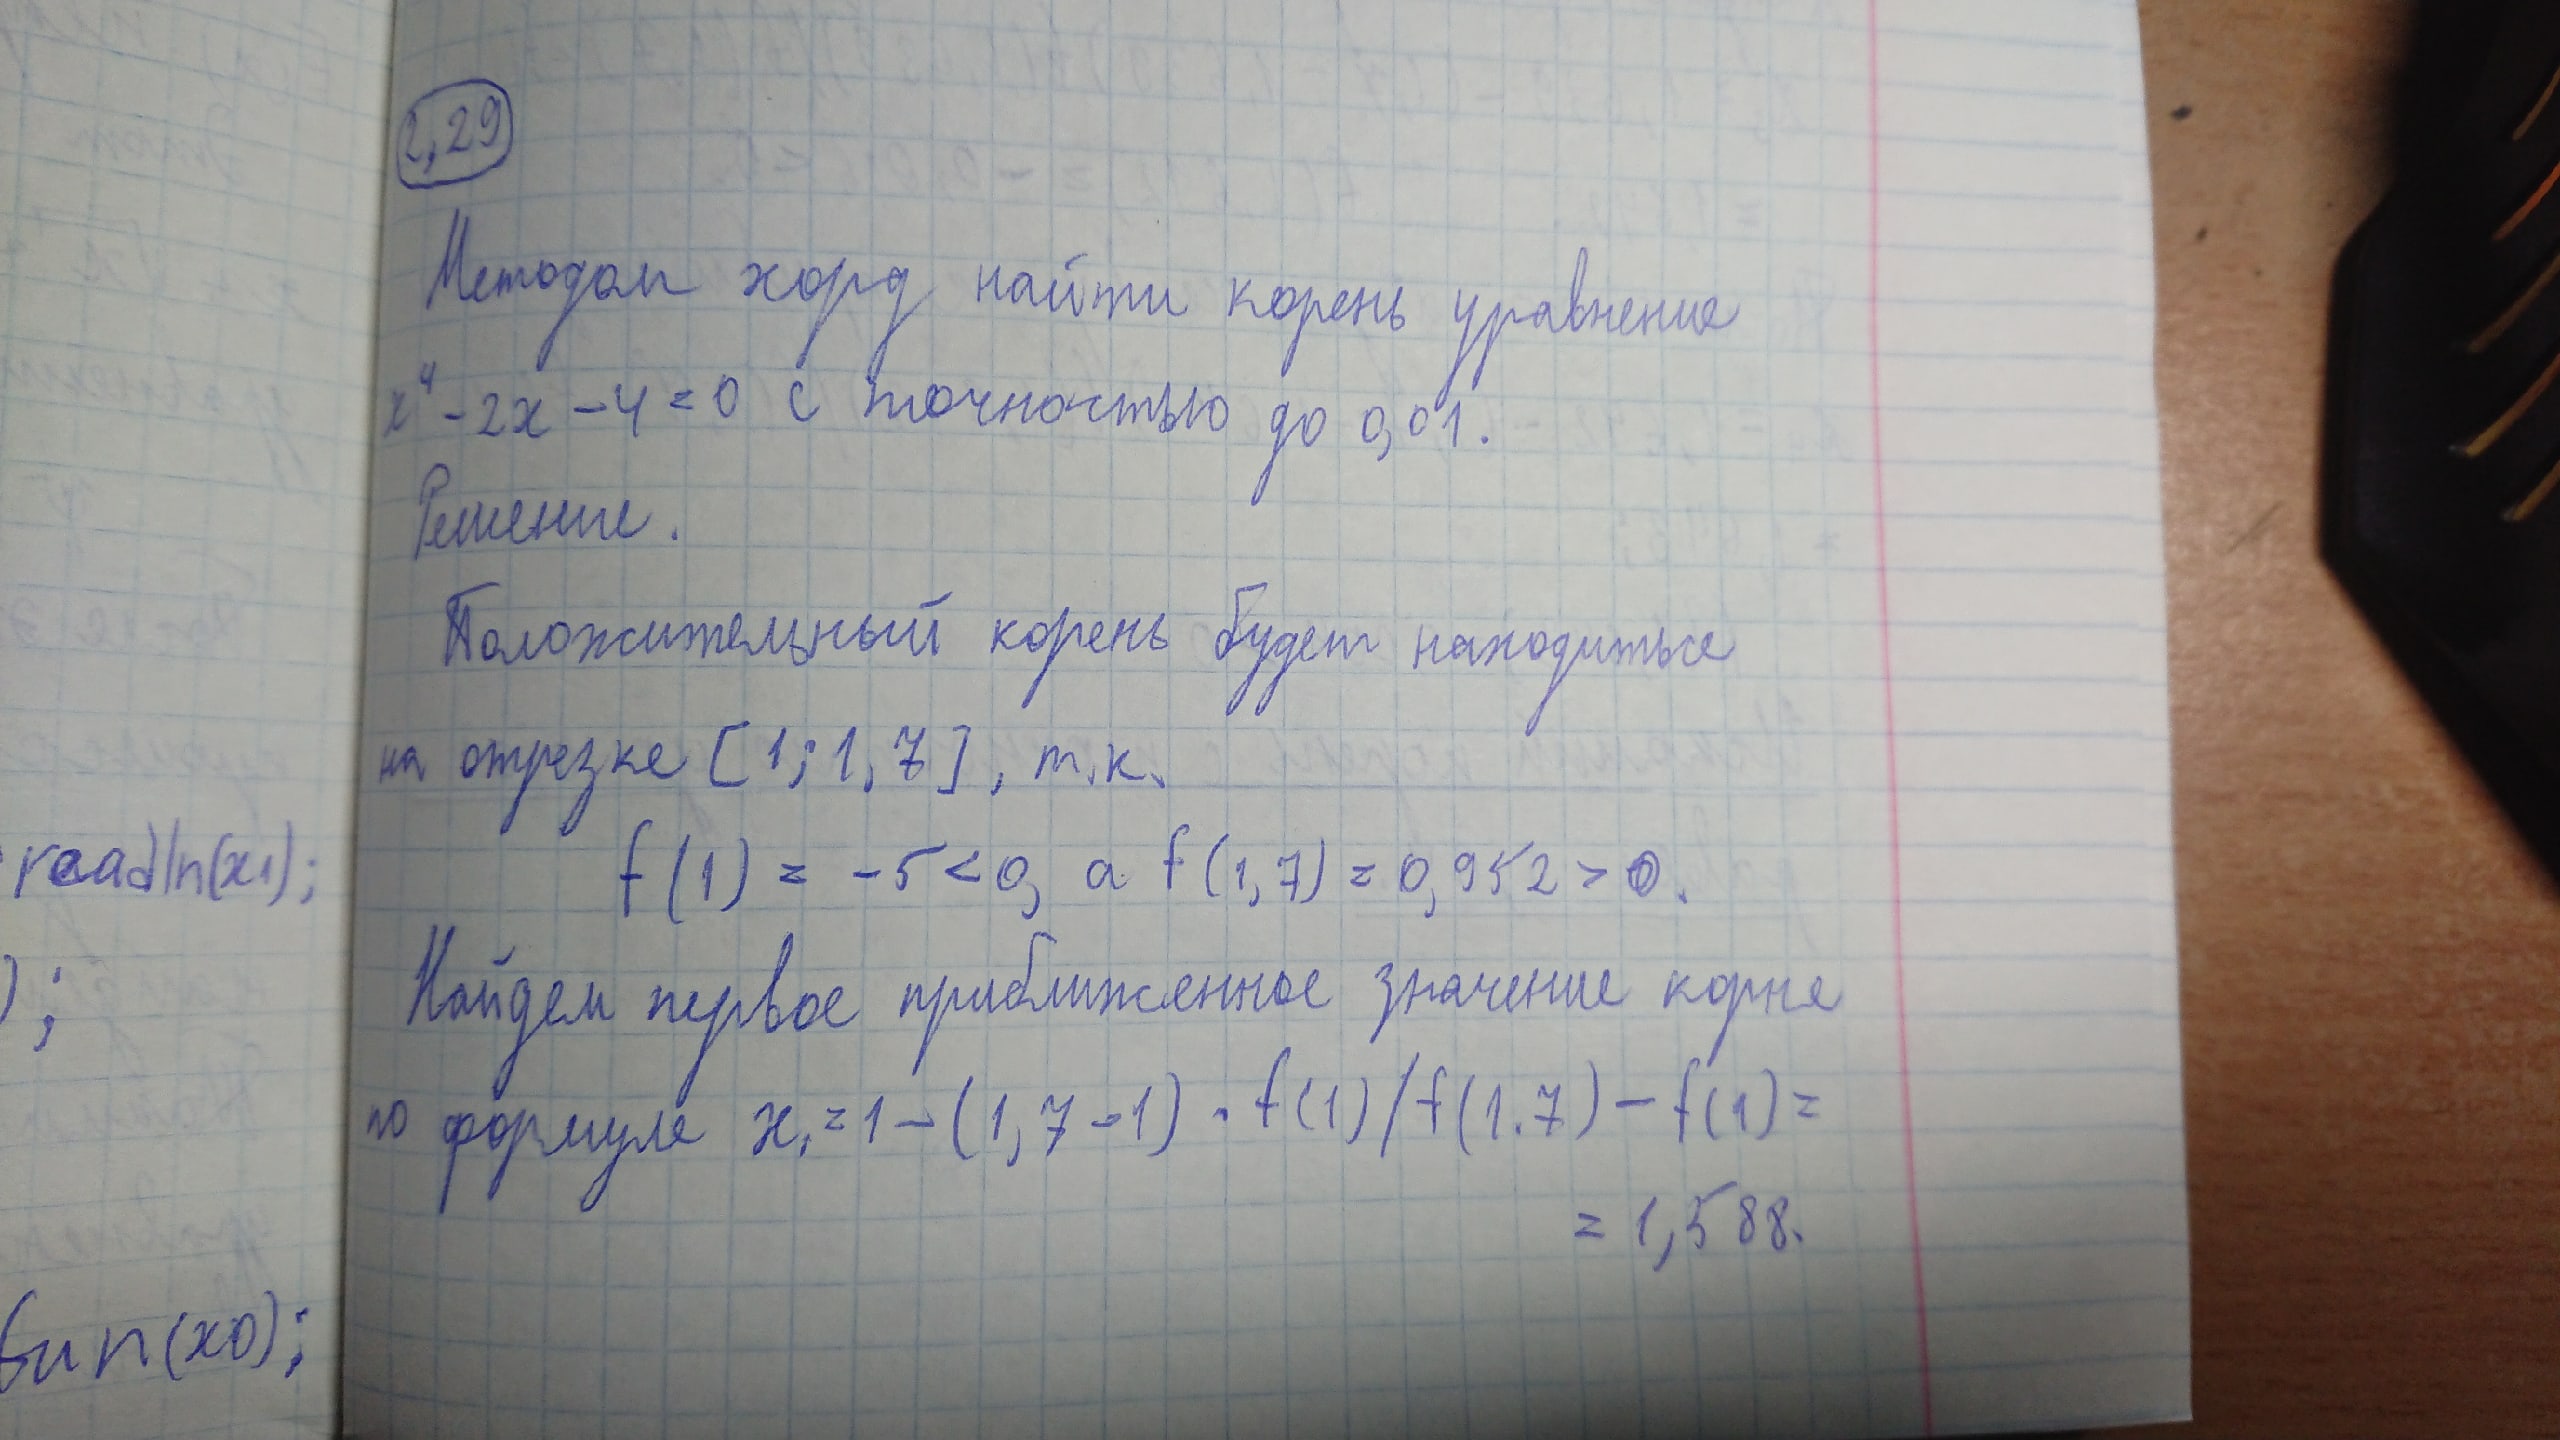 2,29
Методом хорд найти корень уравнение
x⁴ - 2x - 4 = 0 с точностью до 0,01.
Решение.
Положительный корень будет находиться
на отрезке [1; 1,7], т.к.
f(1) = -5 < 0, а f(1,7) = 0,952 > 0.
Найдем первое приближенное значение корня
по формуле x₁ = 1 - (1,7 - 1) · f(1)/f(1.7) - f(1) =
= 1,588.
readln(x1);
);
fun(x0);